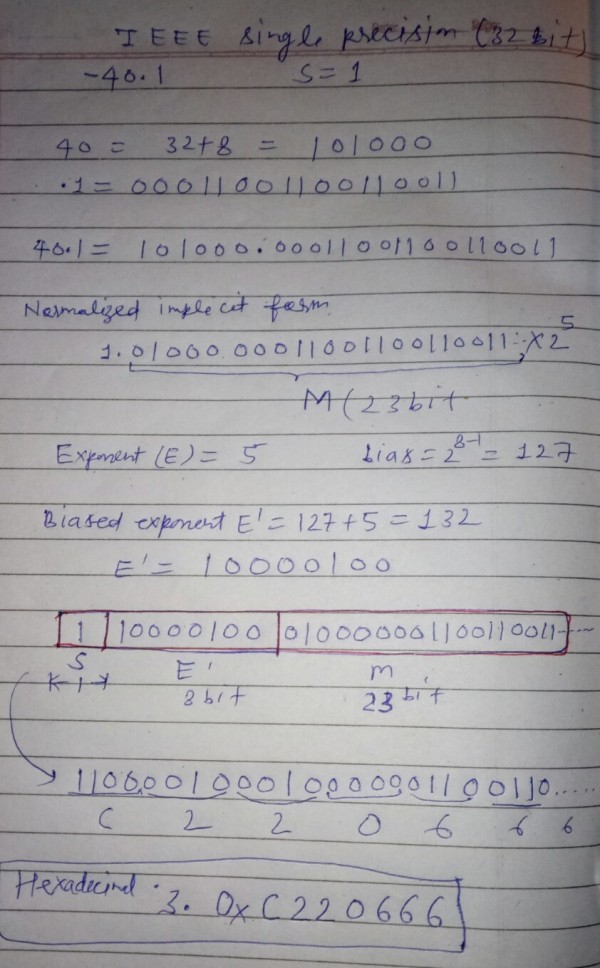 IEEE single precision (32 bit)
-40.1 S=1
40 = 32+8 = 101000
.1= 00011001100110011
40.1= 101000.00011001100110011
Normalized implecit form
1.0100000011001100110011... X2^5
M(23bit
Exponent (E) = 5 bias=2^8-1= 127
Biased exponent E'=127+5=132
E'= 10000100
1 10000100 01000000110011 0011-...
S E' M
K 1 X 8bit 23 bit
11000010001000000110 0110.....
C 2 2 0 6 6 6
Hexadecimal 3. 0xC220666